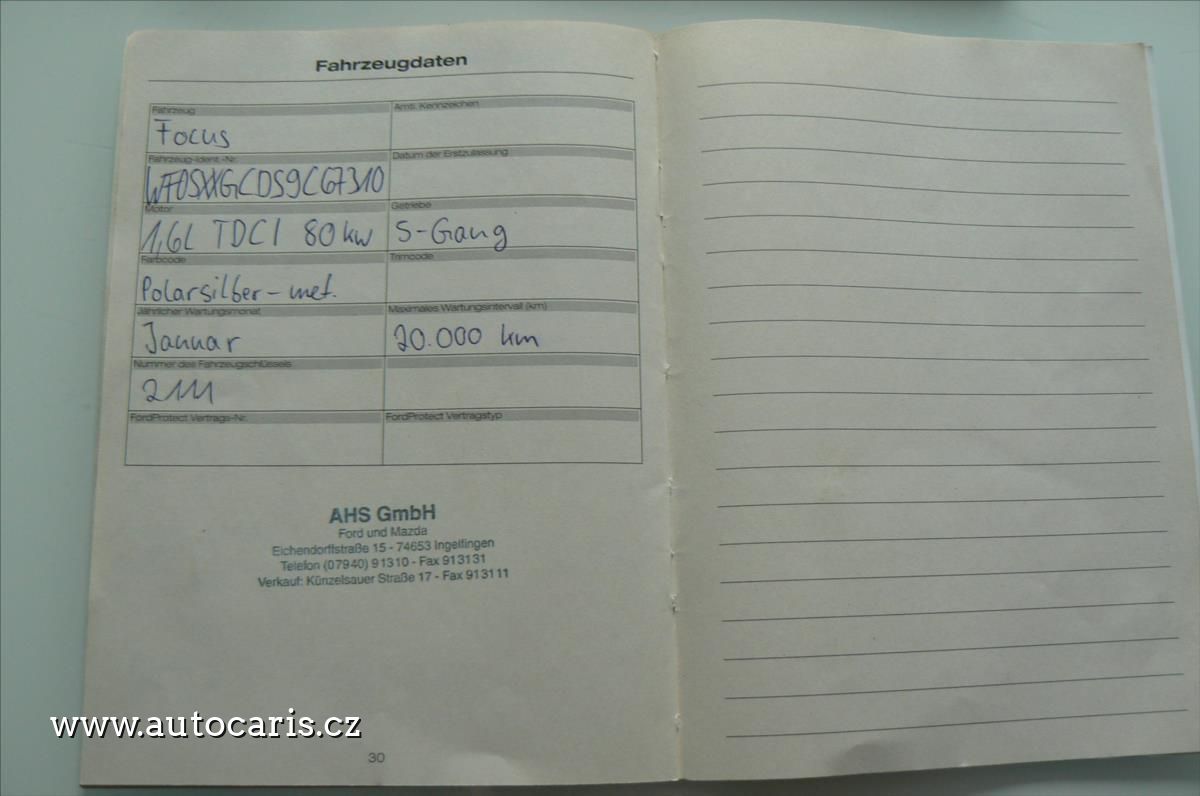 Fahrzeugdaten
Fahrzeug
Amtl. Kennzeichen
Focus
Fahrzeug-Ident.-Nr.
Datum der Erstzulassung
WF0SXXGCDS9CG7310
Motor
Getriebe
1,6L TDCI 80 kw
5-Gang
Farbcode
Trimcode
Polarsilber-met.
Jährlicher Wartungsmonat
Maximales Wartungsintervall (km)
Januar
20.000 km
Nummer des Fahrzeugschlüssels
2111
FordProtect Vertrags-Nr.
FordProtect Vertragstyp
AHS GmbH
Ford und Mazda
Eichendorffstraße 15 - 74653 Ingelfingen
Telefon (07940) 91310 - Fax 913131
Verkauf: Künzelsauer Straße 17 - Fax 913111
30
www.autocaris.cz